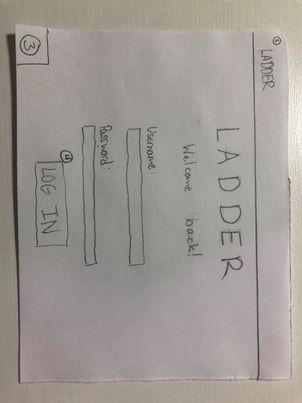 ① LADDER
LADDER
Welcome back!
Username:
Password:
④ LOG IN
③